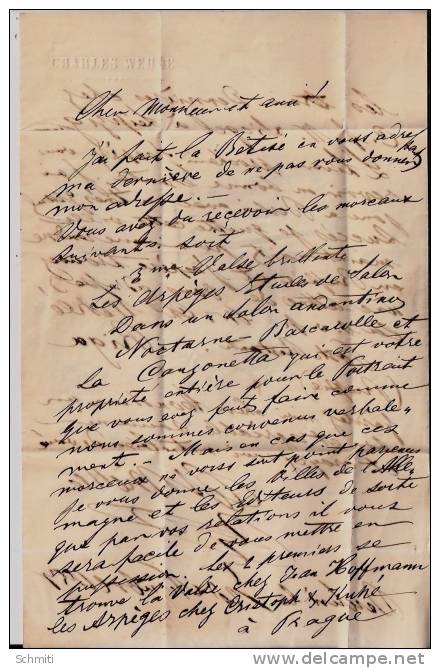 CHARLES WEHLE
Cher Monsieur et ami!
J'ai fait la Bêtise en vous adres
ma dernière de ne pas vous donner
mon adresse. —
Vous avez du recevoir les morceaux
suivants soit
3me Valse brillante
Les Arpèges Etudes de Salon
Dans un Salon andantino
Nocturne Barcarolle et
La Canzonetta qui est votre
propriété entière pour le Portrait
que vous avez fait faire comme
nous sommes convenus verbale-
ment — Mais en cas que ces
morceaux ne vous sont point parvenus
je vous donne les Villes de l'Alle
magne et les Editeurs de sorte
que par vos relations il vous
sera facile de vous mettre en
possession. Les 2 premiers se
trouve la Valse chez Jean Hoffmann
les Arpèges chez Cristoph & Kuhé
à Prague
Schmiti
© www.delcampe.net